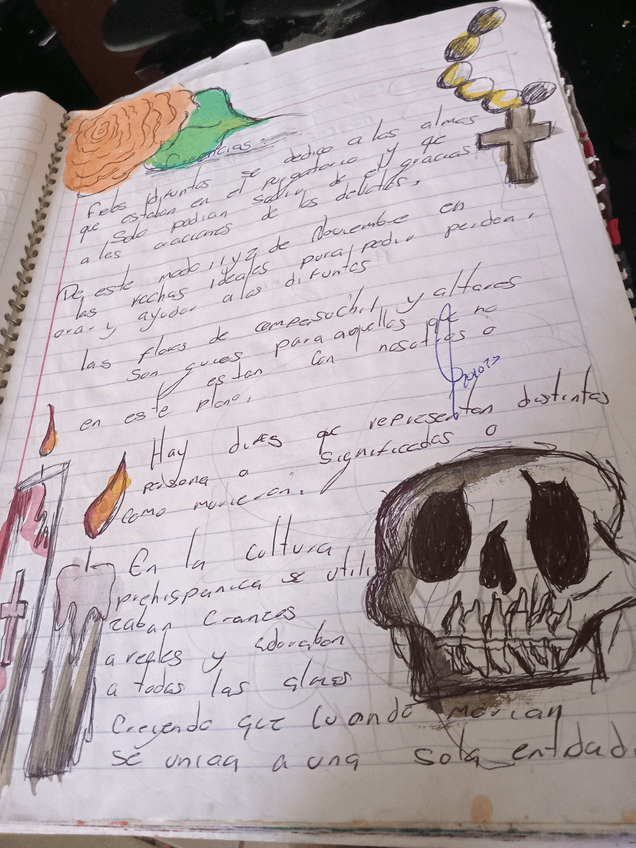 Creencias:
Fieles Difuntos se dedico a las almas
que estaban en el purgatorio y que
Solo podrian salir de el gracias
a las oraciones de los
De este modo, 1 y 2 de Noviembre en
las fechas ideales para pedir perdon,
orar y ayudar a los difuntos
las flores de cempasuchil y altares
Son guias para aquellos que no
estan con nosotros o
en este plano.
Hay dias que representan distintas
persona o significados o
como murieron.
En la cultura
prehispanica se utili
zaban craneos
areales y adoraban
a todas las almas
Creyendo que cuando morian
se unian a una sola entidad